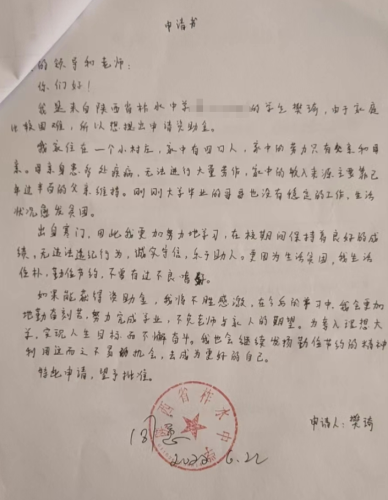 申请书
的领导和老师:
你们好!
我是来自陕西省柞水中学 的学生樊琦,由于家庭
比较困难,所以想提出申请资助金。
我家住在一个小村庄,家中有四口人,家中的劳力只有父亲和母
亲。母亲身患多处疾病,无法进行大量劳作,家中的收入来源主要靠已
年过半百的父亲维持。刚刚大学毕业的哥哥也没有稳定的工作,生活
状况愈发贫困。
出自寒门,因此我更加努力地学习,在校期间保持着良好的成
绩,无违法违纪行为,诚实守信,乐于助人。更因为生活贫困,我生活
俭朴,勤俭节约,不曾有过不良嗜
如果能获得资助金,我将不胜感激,在今后的学习中,我会更加
地勤奋刻苦,努力完成学业,不负老师与家人的期望。为考入理想大
学,实现人生目标而不懈奋斗。我也会继续发扬勤俭节约的精神
利用这而之不易 机会,去成为更好的自己。
特此申请,望予批准。
西省柞水中
同意
申请人:樊琦
2022.6.22